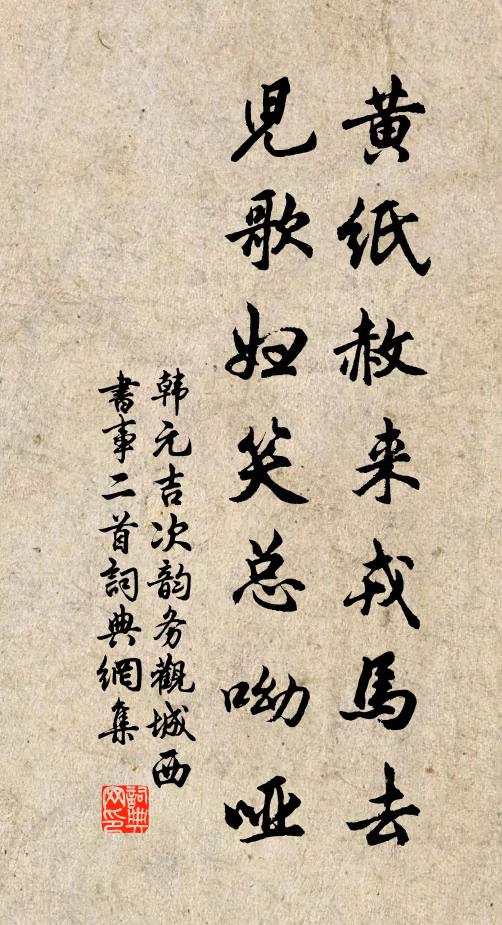 黄紙赦来戎馬去
児歌妇笑总呦哑
韩元吉次韵务觀城西
書事二首詞典網集
詞典网印